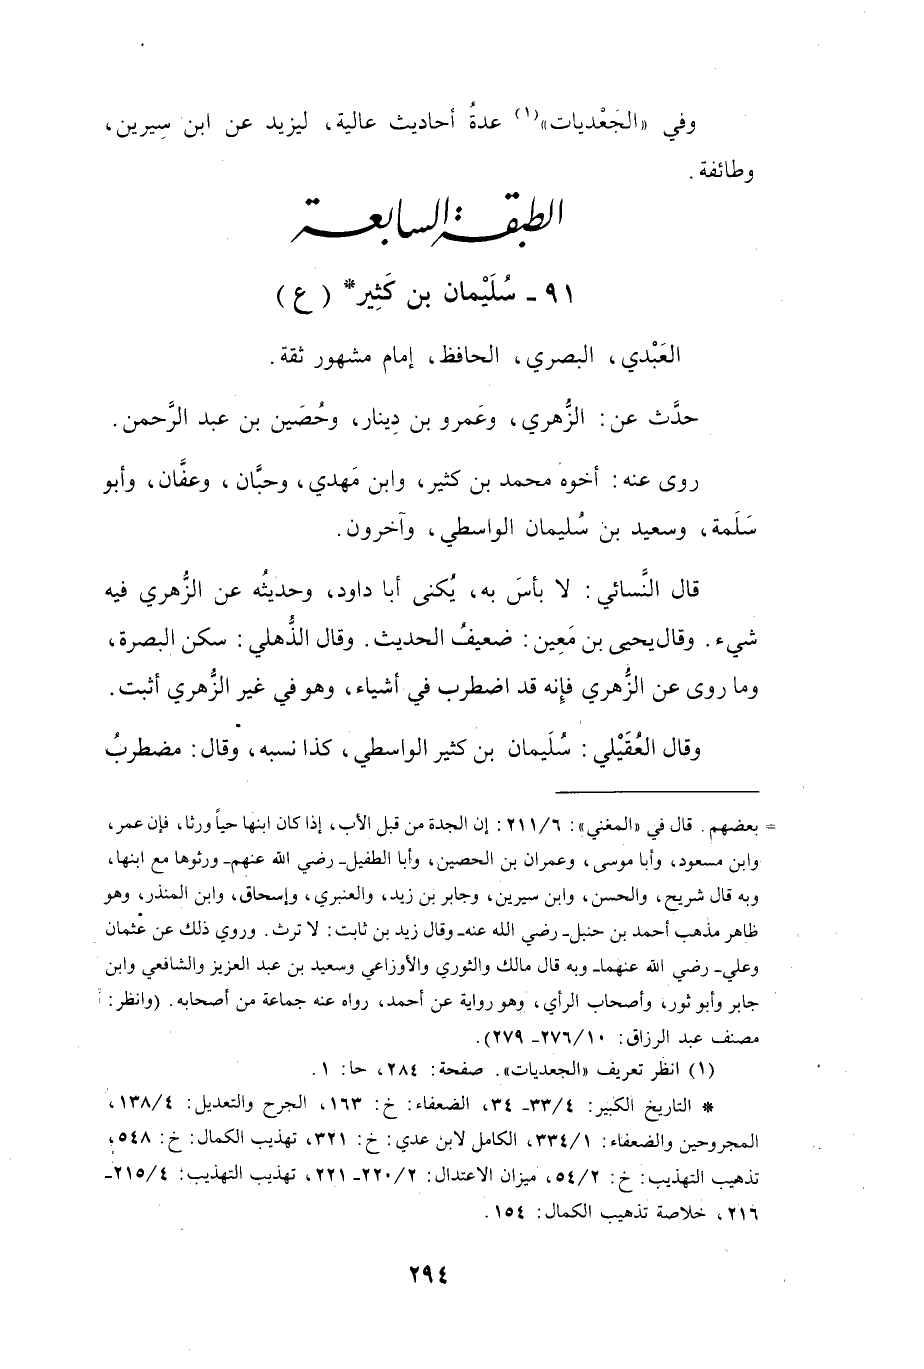 وفي «الجَعْديات»(١) عدةُ أحاديث عالية، ليزيد عن ابن سِيرين،
وطائفة.
الطبقة السابعة
٩١ - سُلَيْمان بن كَثِير* (ع)
العَبْدي، البصري، الحافظ، إمام مشهور ثقة.
حدَّث عن: الزُّهري، وعَمرو بن دِينار، وحُصَين بن عبد الرَّحمن.
روى عنه: أخوه محمد بن كثير، وابن مَهدي، وحبَّان، وعفَّان، وأبو
سَلَمة، وسعيد بن سُليمان الواسطي، وآخرون.
قال النَّسائي: لا بأسَ به، يُكنى أبا داود، وحديثُه عن الزُّهري فيه
شيء. وقال يحيى بن مَعِين: ضعيفُ الحديث. وقال الذُّهلي: سكن البصرة،
وما روى عن الزُّهري فإنه قد اضطرب في أشياء، وهو في غير الزُّهري أثبت.
وقال العُقَيْلي: سُلَيمان بن كثير الواسطي، كذا نسبه، وقال: مضطربُ
= بعضهم. قال في «المغني»: ٢١١/٦: إن الجدة من قبل الأب، إذا كان ابنها حياً ورثا، فإن عمر،
وابن مسعود، وأبا موسى، وعمران بن الحصين، وأبا الطفيل- رضي الله عنهم- ورثوها مع ابنها،
وبه قال شريح، والحسن، وابن سيرين، وجابر بن زيد، والعنبري، وإسحاق، وابن المنذر، وهو
ظاهر مذهب أحمد بن حنبل- رضي الله عنه- وقال زيد بن ثابت: لا ترث. وروي ذلك عن عثمان
وعلي- رضي الله عنهما- وبه قال مالك والثوري والأوزاعي وسعيد بن عبد العزيز والشافعي وابن
جابر وأبو ثور، وأصحاب الرأي، وهو رواية عن أحمد، رواه عنه جماعة من أصحابه. (وانظر:
مصنف عبد الرزاق: ٢٧٦/١٠- ٢٧٩).
(١) انظر تعريف «الجعديات». صفحة: ٢٨٤، حا: ١.
* التاريخ الكبير: ٣٣/٤- ٣٤، الضعفاء: خ: ١٦٣، الجرح والتعديل: ١٣٨/٤،
المجروحين والضعفاء: ٣٣٤/١، الكامل لابن عدي: خ: ٣٢١، تهذيب الكمال: خ: ٥٤٨،
تذهيب التهذيب: خ: ٥٤/٢، ميزان الاعتدال: ٢٢٠/٢- ٢٢١، تهذيب التهذيب: ٢١٥/٤-
٢١٦، خلاصة تذهيب الكمال: ١٥٤.
٢٩٤